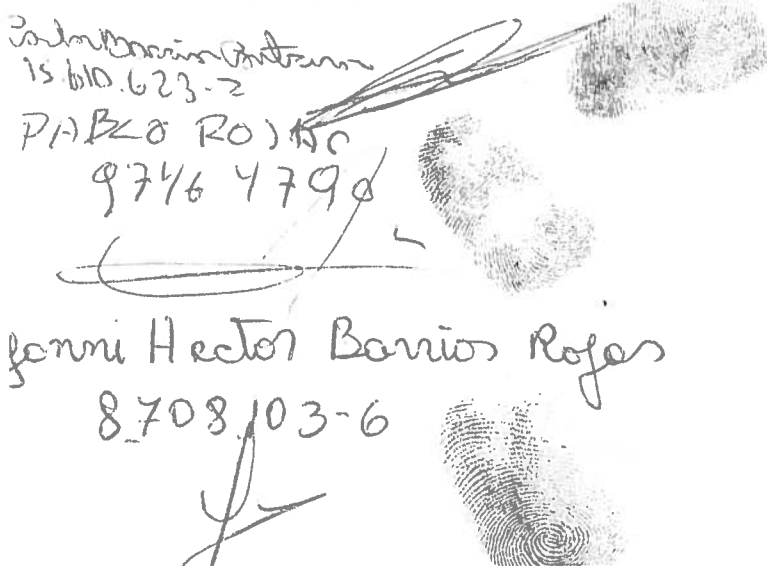 Barrios
15.610.623-2
PABLO ROJAS
9746 4790
Hector Barrios Rojas
8.708.103-6